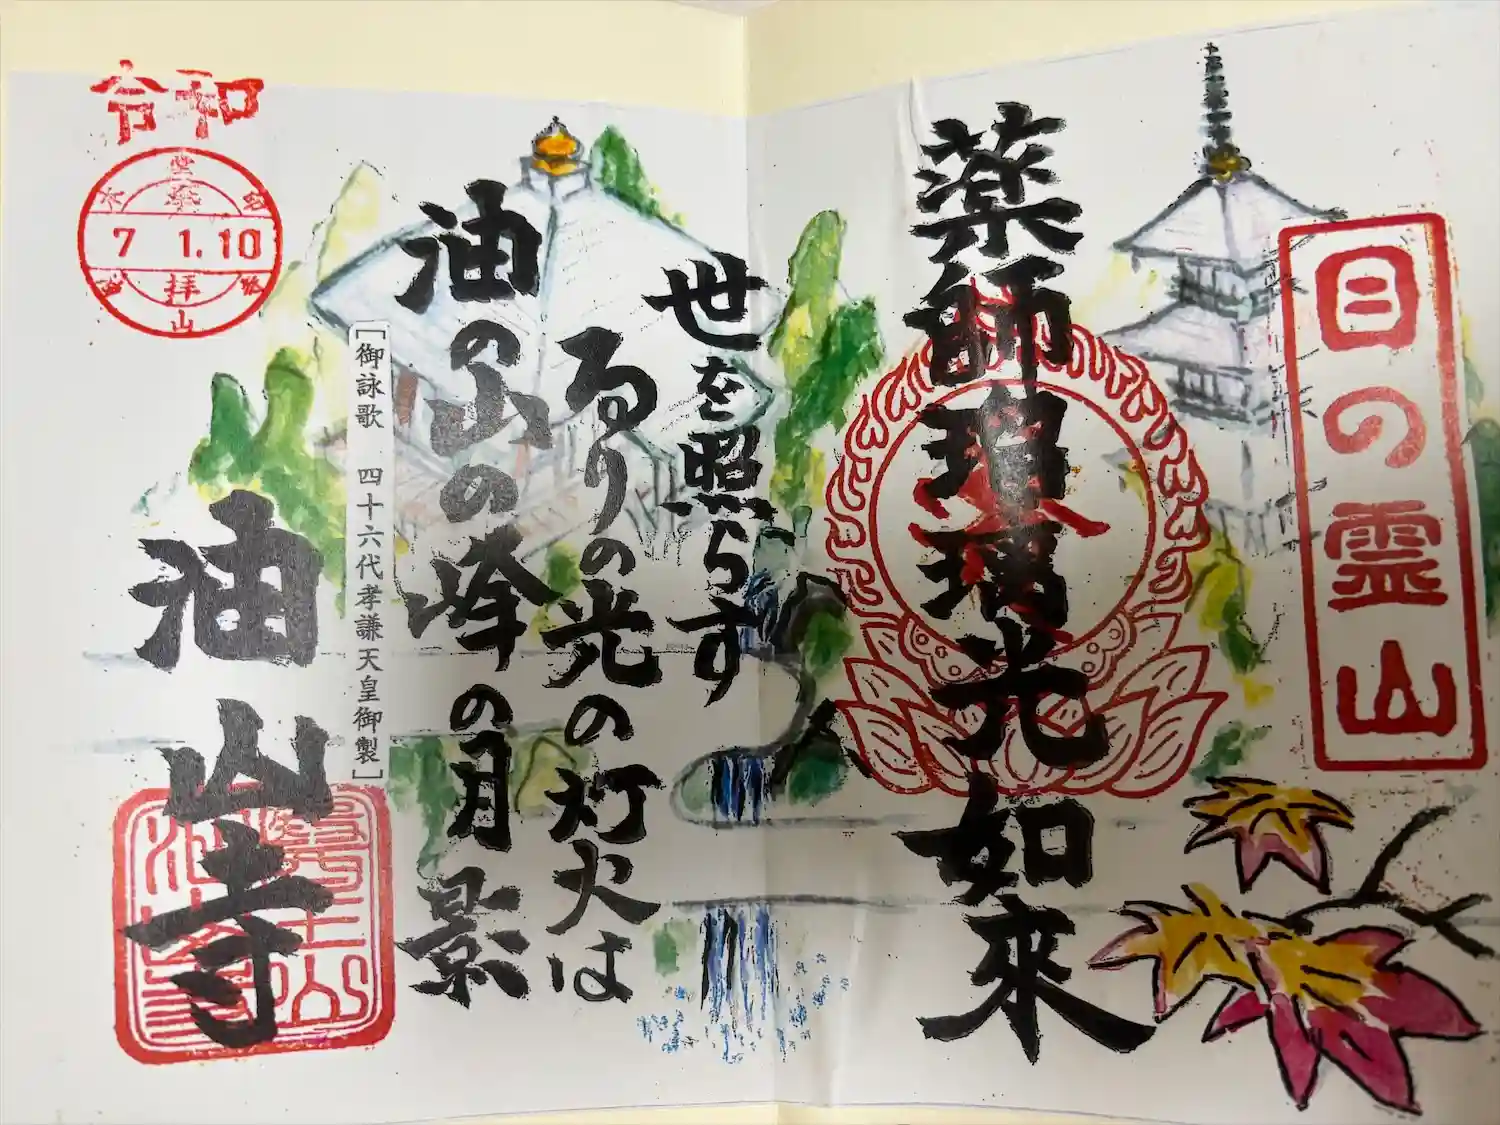 目の霊山
薬師瑠璃光如来
世を照らす
るりの光の灯火は
油の山の峰の月影
［御詠歌　四十六代孝謙天皇御製］
油山寺
令和
7 1.10
拝
山